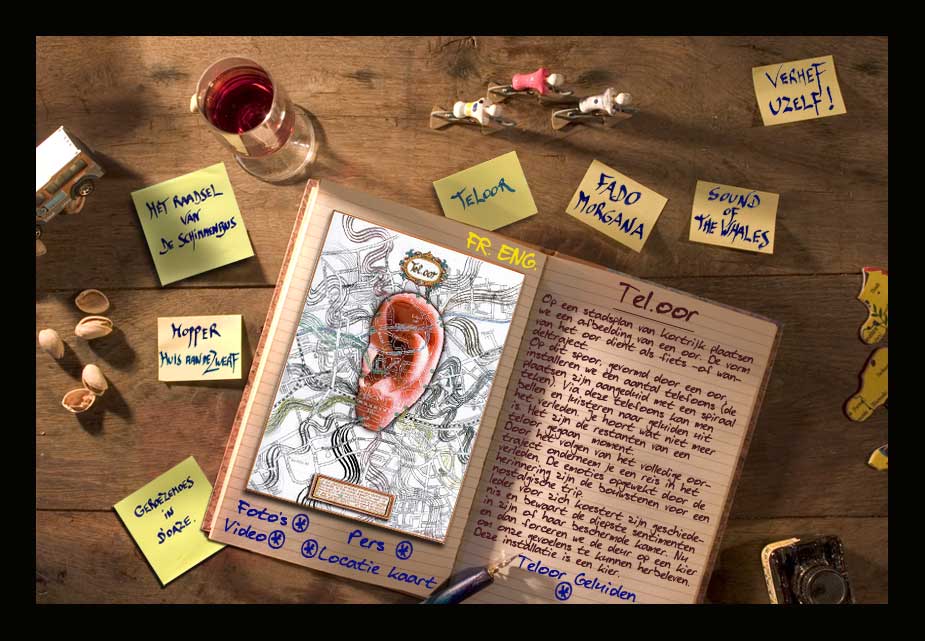 VERHEF
UZELF!
HET RAADSEL
VAN
DE SCHIMMENBUS
TELOOR
FADO
MORGANA
SOUND
OF
THE WHALES
HOPPER
HUIS AAN DE ZWERF
GEROEZEMOES
IN
FR. ENG.
Tel.oor
Foto's
Video
Pers
Locatie kaart
Tel.oor
Op een stadsplan van Kortrijk plaatsen
we een afbeelding van een oor. De vorm
van het oor dient als fiets -of wan-
deltraject.
Op dit spoor, gevormd door een oor,
installeren we een aantal telefoons (de
plaatsen zijn aangeduid met een spiraal
teken). Via deze telefoons kan men
bellen en luisteren naar geluiden uit
het verleden. Je hoort wat niet meer
is. Het zijn de restanten van een
teloor gegaan moment.
Door het volgen van het volledige oor-
traject onderneem je een reis in het
verleden. De emoties opgewekt door de
herinnering zijn de bouwstenen voor een
nostalgische trip.
Ieder voor zich koestert zijn geschiede-
nis en bewaart de diepste sentimenten
in zijn of haar beschermde kamer. Nu
en dan forceren we de deur op een kier
om onze gevoelens te kunnen herbeleven.
Deze installatie is een kier.
Teloor Geluiden